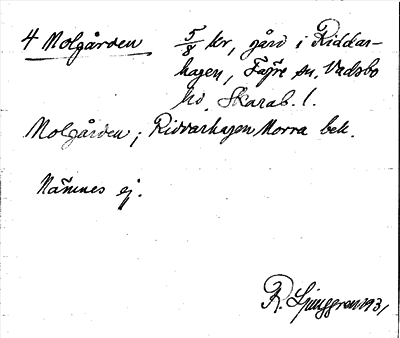 4 Molgården 5/8 kr, gård i Riddar-
hagen, Fägre sn, Vadsbo
hd, Skarab. l.
Molgården; Riddarhagen Norra bek.
Nämnes ej.
R. Ljunggren 1931